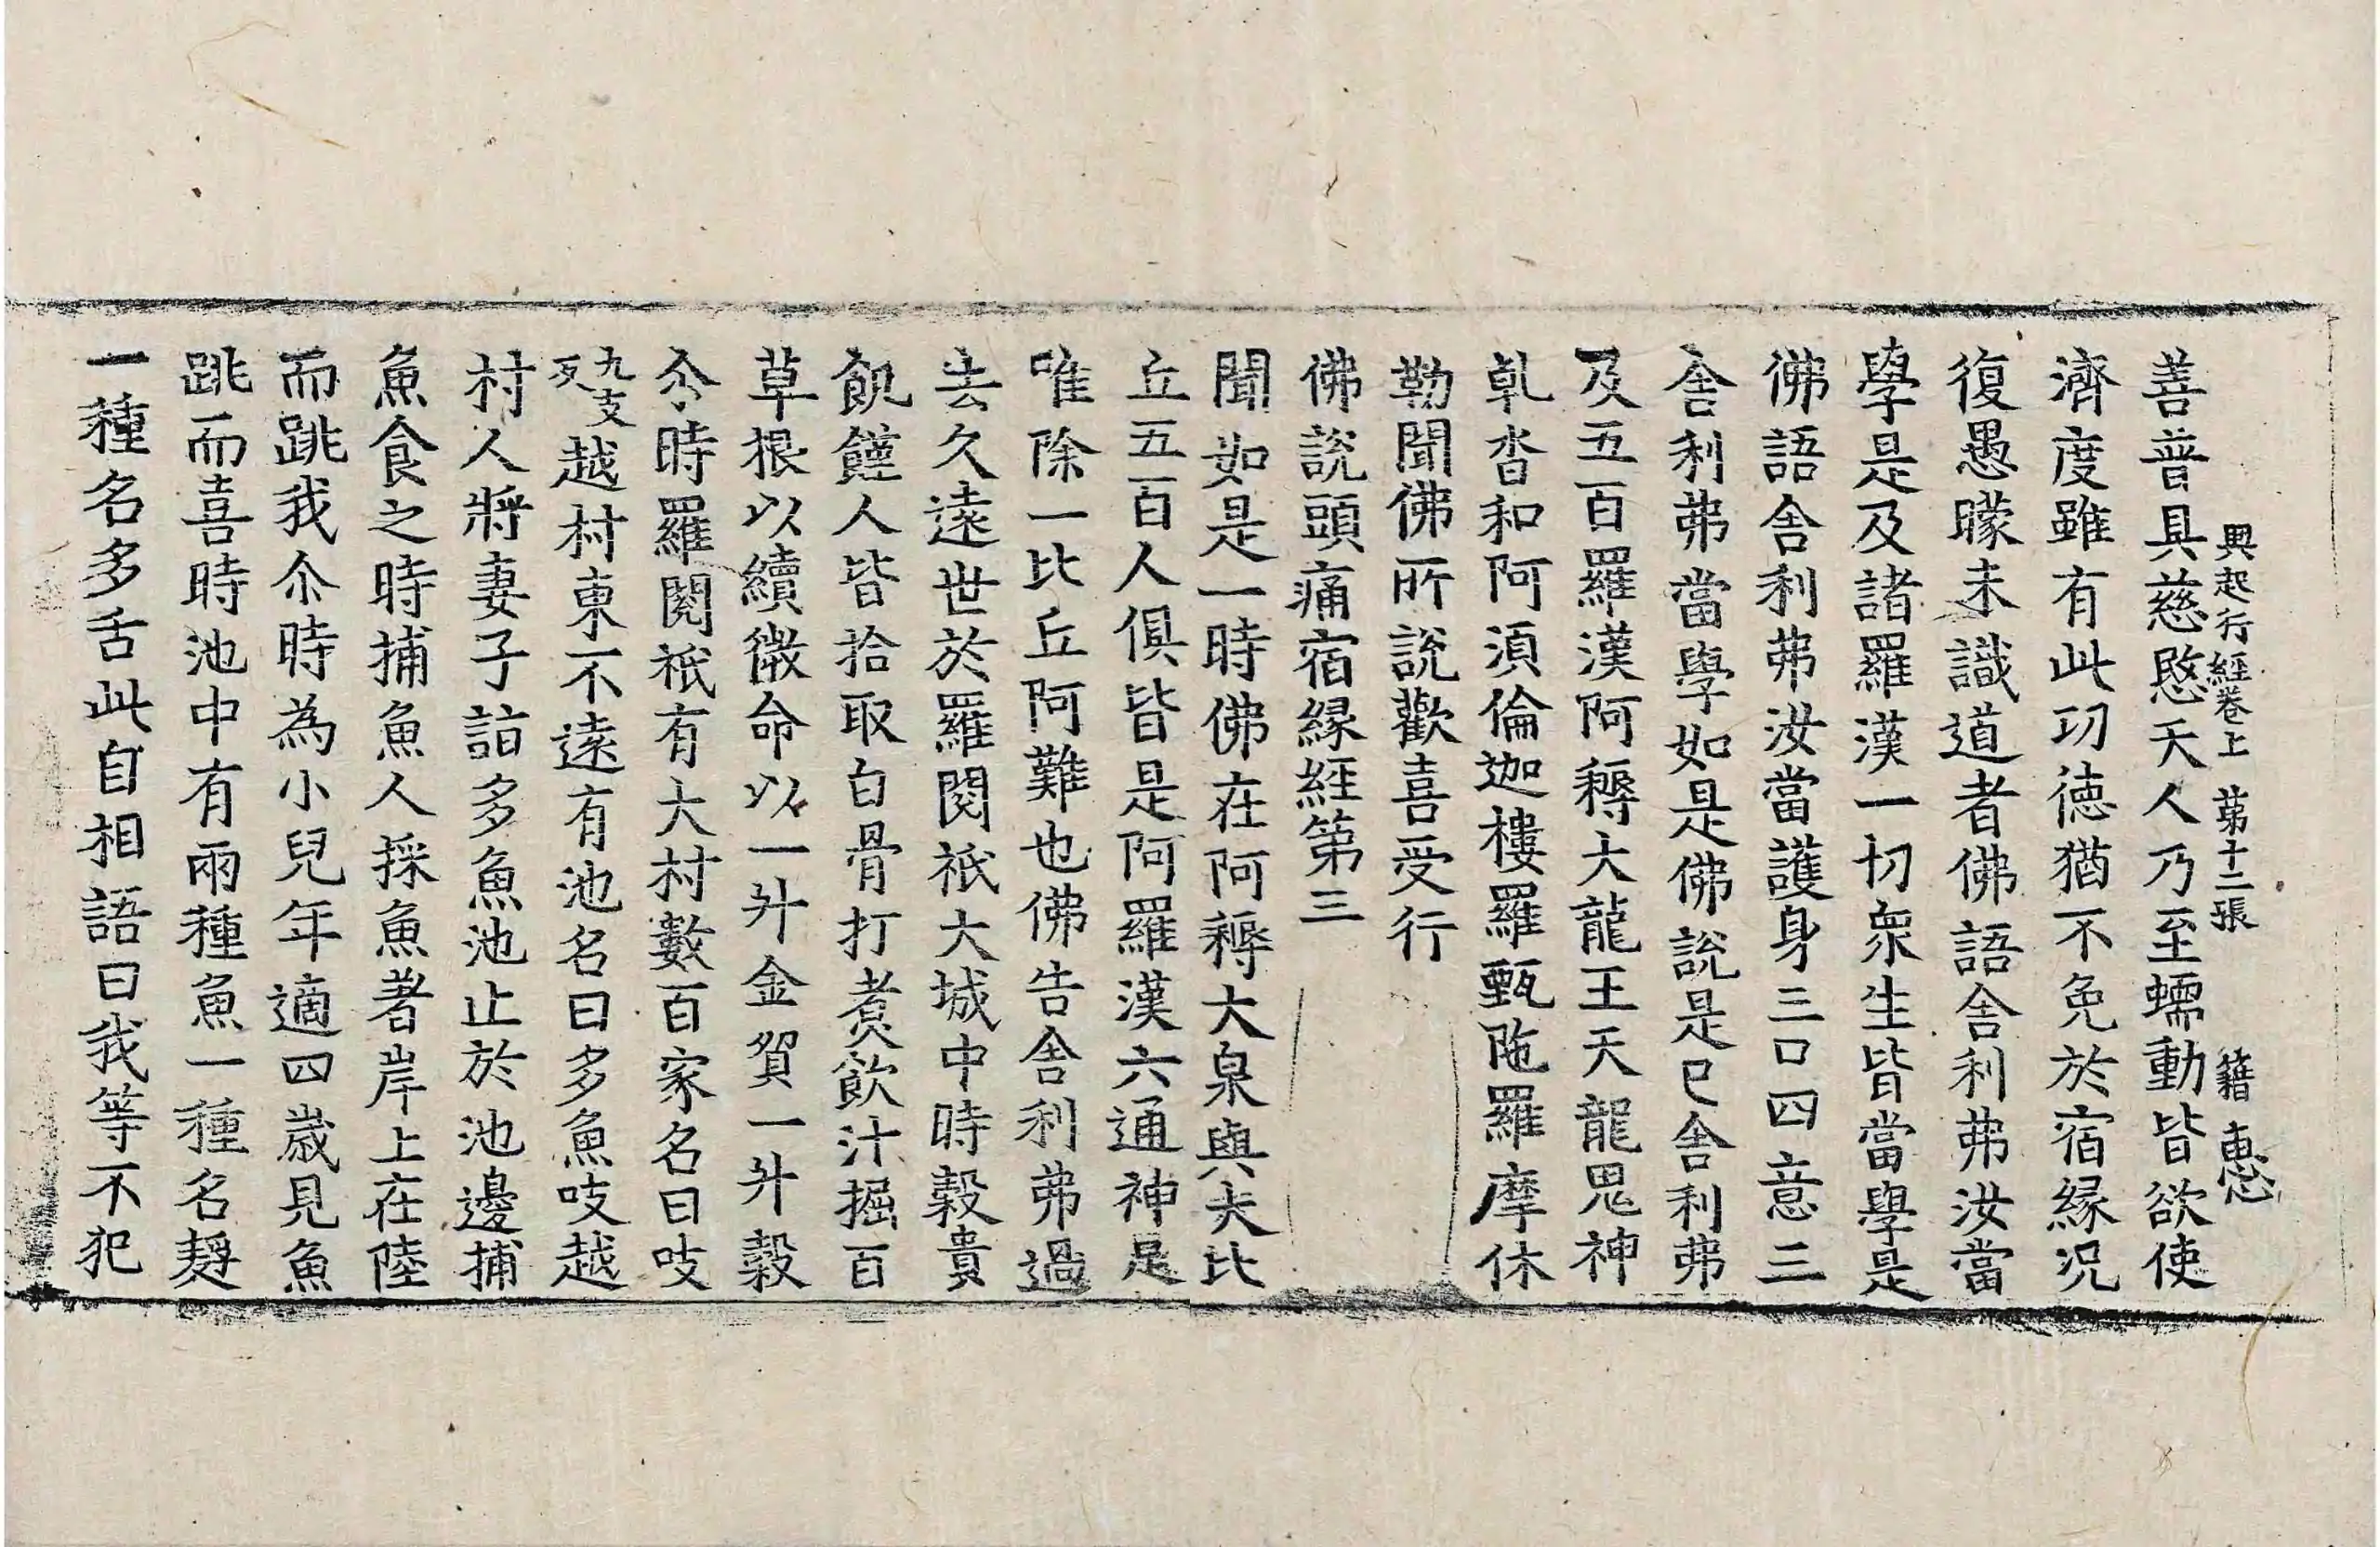 興起行經卷上　第十二張　籍　惠
善普具慈愍天人乃至蠕動皆欲使
濟度雖有此功德猶不免於宿緣況
復愚曚未識道者佛語舍利弗汝當
學是及諸羅漢一切衆生皆當學是
佛語舍利弗汝當護身三口四意三
舍利弗當學如是佛說是已舍利弗
及五百羅漢阿耨大龍王天龍鬼神
乹沓和阿湏倫迦樓羅甄陁羅摩休
勒聞佛所說歡喜受行
佛說頭痛宿緣經第三
聞如是一時佛在阿耨大泉與大比
丘五百人俱皆是阿羅漢六通神足
唯除一比丘阿難也佛告舍利弗過
去久遠世於羅閱祇大城中時穀貴
飢饉人皆拾取白骨打煑飲汁掘百
草根以續微命以一升金貿一升穀
尒時羅閱祇有大村數百家名曰吱
九支反越村東不遠有池名曰多魚吱越
村人將妻子詣多魚池止於池邊捕
魚食之時捕魚人採魚著岸上在陸
而跳我尒時為小兒年適四歲見魚
跳而喜時池中有兩種魚一種名䴸
一種名多舌此自相語曰我等不犯